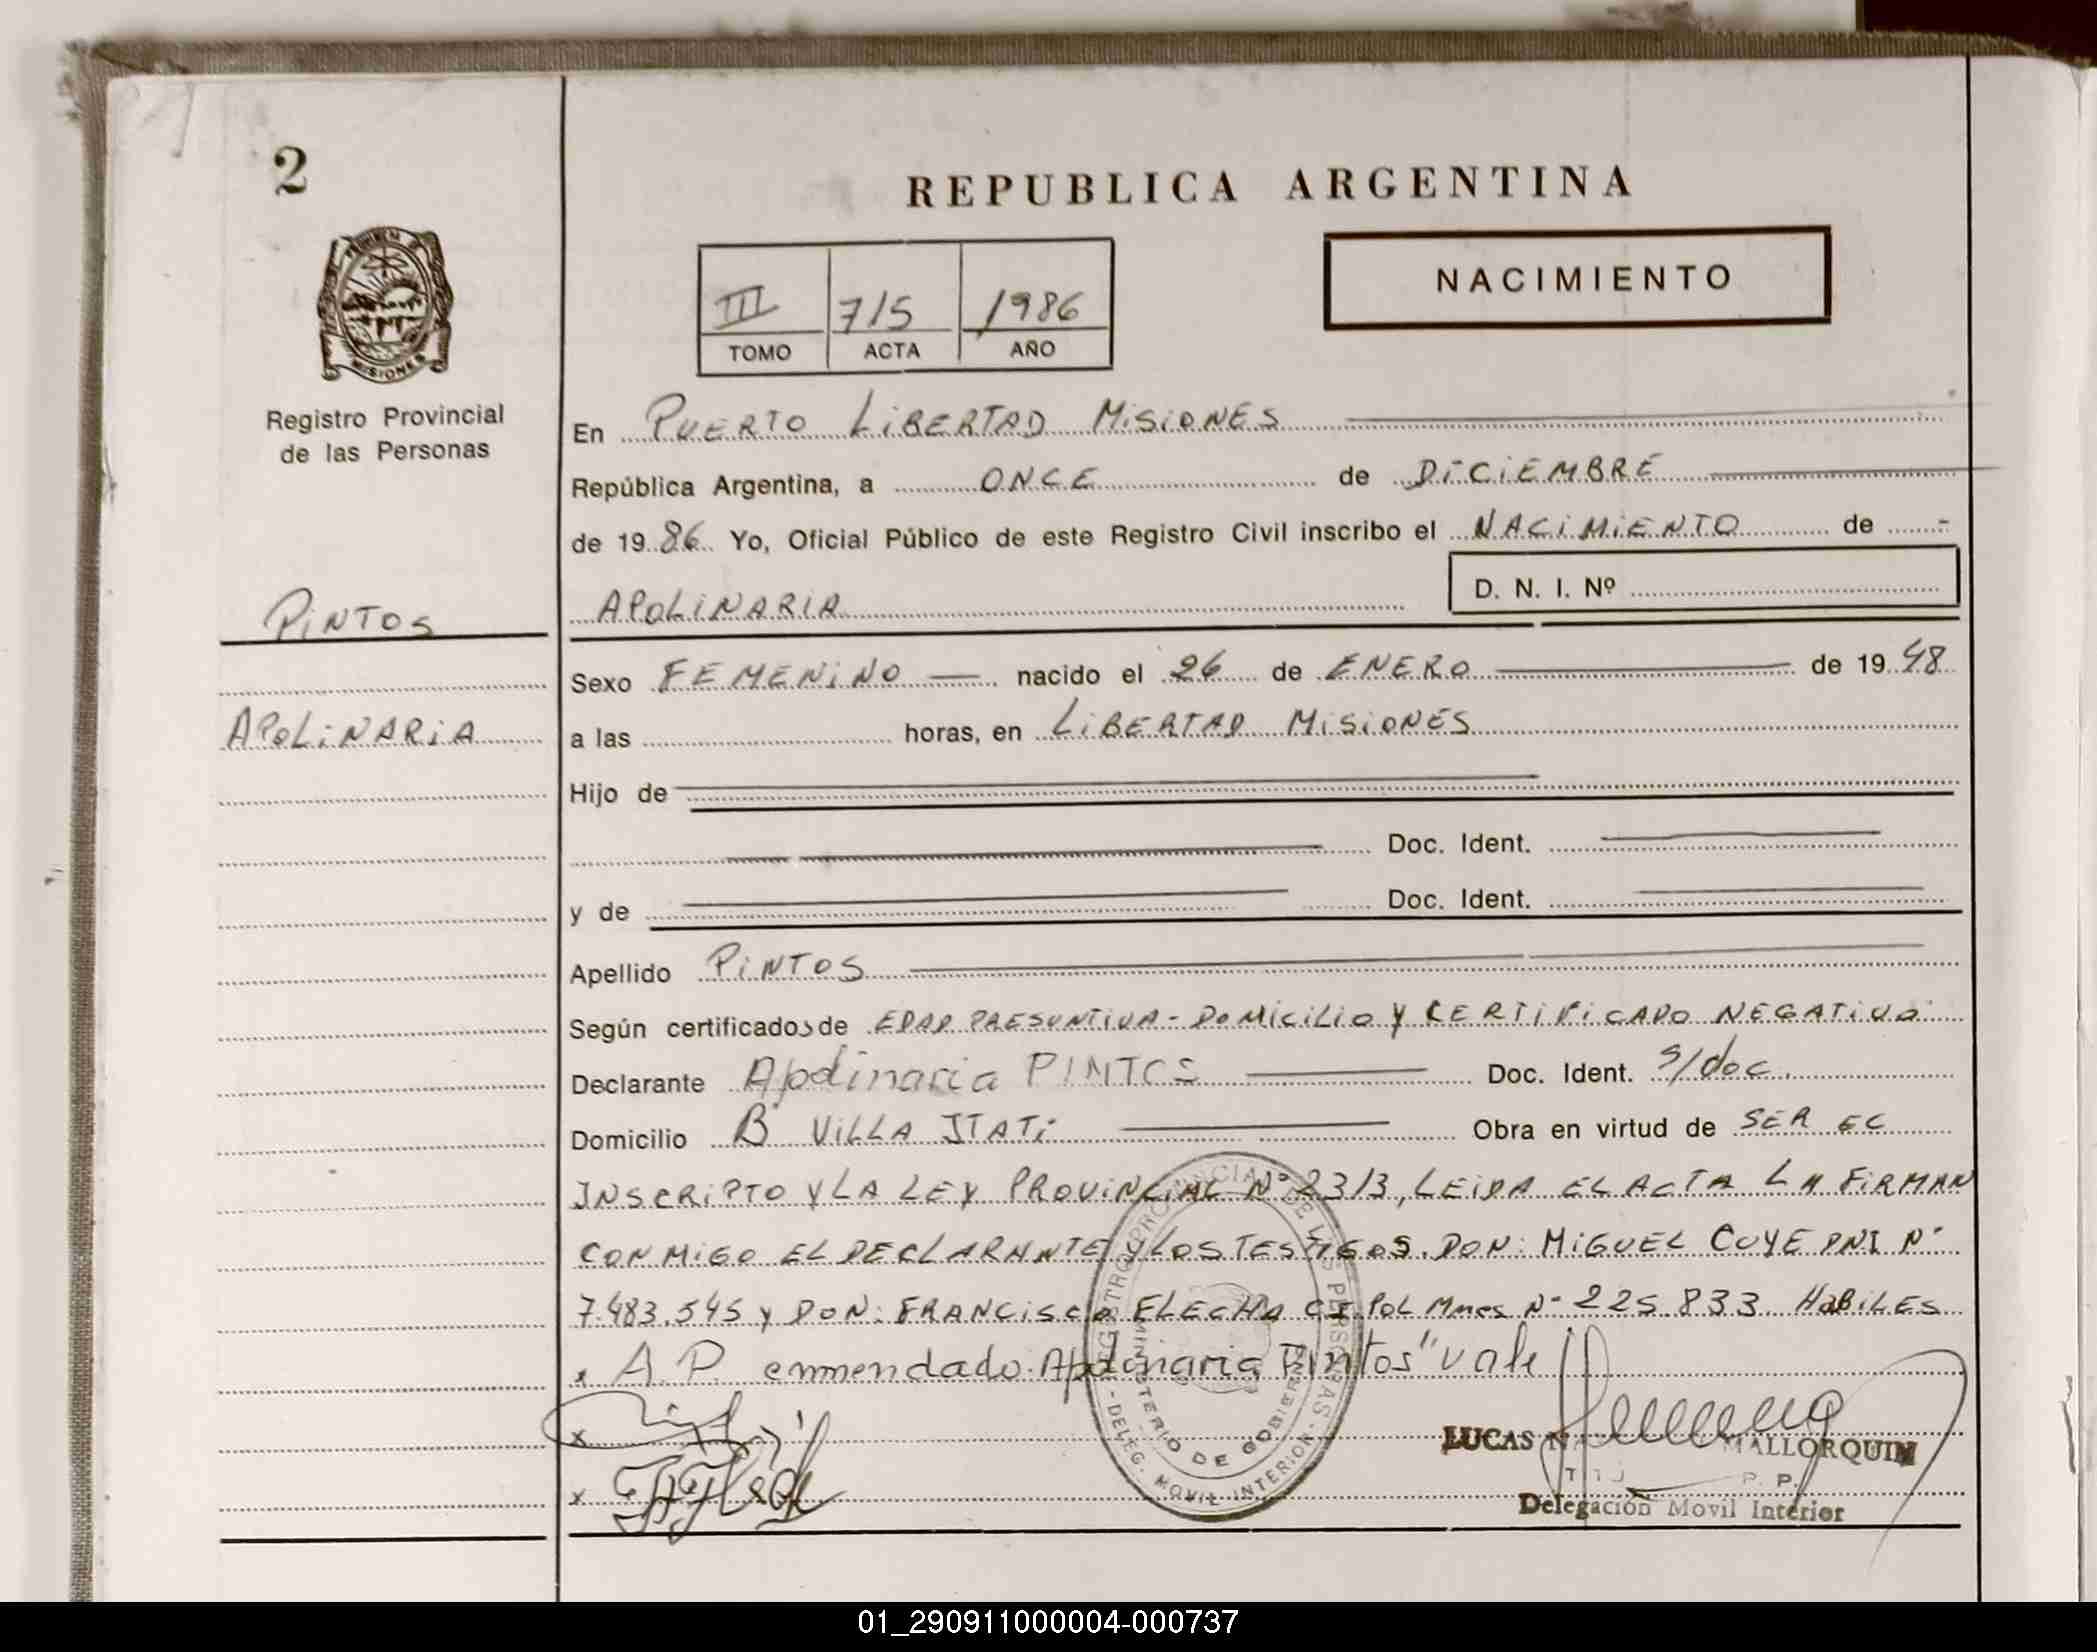 2
REPUBLICA ARGENTINA
NACIMIENTO
III 715 1986
TOMO ACTA AÑO
MISIONES
Registro Provincial
de las Personas
En PUERTO LIBERTAD MISIONES
República Argentina, a ONCE de DICIEMBRE
de 1986 Yo, Oficial Público de este Registro Civil inscribo el NACIMIENTO de
APOLINARIA D. N. I. Nº
PINTOS
APOLINARIA
Sexo FEMENINO nacido el 26 de ENERO de 1948
a las horas, en LIBERTAD MISIONES
Hijo de
Doc. Ident.
y de Doc. Ident.
Apellido PINTOS
Según certificados de EDAD PRESUNTIVA - DOMICILIO Y CERTIFICADO NEGATIVO
Declarante Apolinaria PINTOS Doc. Ident. s/doc
Domicilio B° VILLA ITATI Obra en virtud de SER EL
INSCRIPTO Y LA LEY PROVINCIAL N° 2313, LEIDA EL ACTA LA FIRMAN
CONMIGO EL DECLARANTE Y LOS TESTIGOS. DON: MIGUEL CUYE DNI N°
7.483.545 y DON: FRANCISCO FLECHA C.I. POL Mnes N° 225833 HABILES
x A.P. enmendado. Apolinaria Pintos" vale
x
x
REGISTRO PROVINCIAL DE LAS PERSONAS - DELEG. MOVIL INTERIOR -
MINISTERIO DE GOBIERNO
LUCAS MALLORQUIN
P. P.
Delegación Movil Interior
01_290911000004-000737